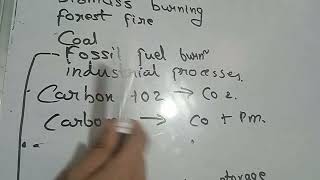 Biomass burning
forest fire
Coal
Fossil fuel burnⁿ
industrial processes.
Carbon + O2 → CO2.
Carbon → CO + Pm.
storage